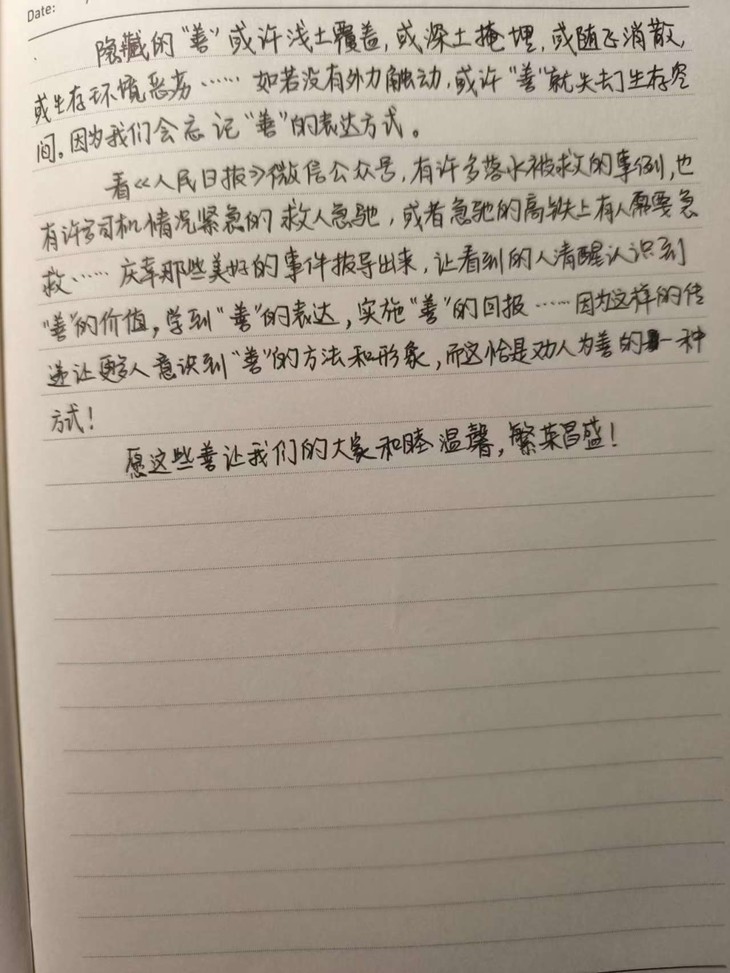 Date:
隐藏的“善”或许浅土覆盖，或深土掩埋，或随飞消散，
或生存环境恶劣……如若没有外力触动，或许“善”就失去了生存空
间。因为我们会忘记“善”的表达方式。
看《人民日报》微信公众号，有许多落水被救的事例，也
有许多司机情况紧急的救人急驰，或者急驰的高铁上有人需要急
救……庆幸那些美好的事件报导出来，让看到的人清醒认识到
“善”的价值，学到“善”的表达，实施“善”的回报……因为这样的传
递让更多人意识到“善”的方法和形象，而这恰是劝人为善的一种
方式！
愿这些善让我们的大家和睦温馨，繁荣昌盛！